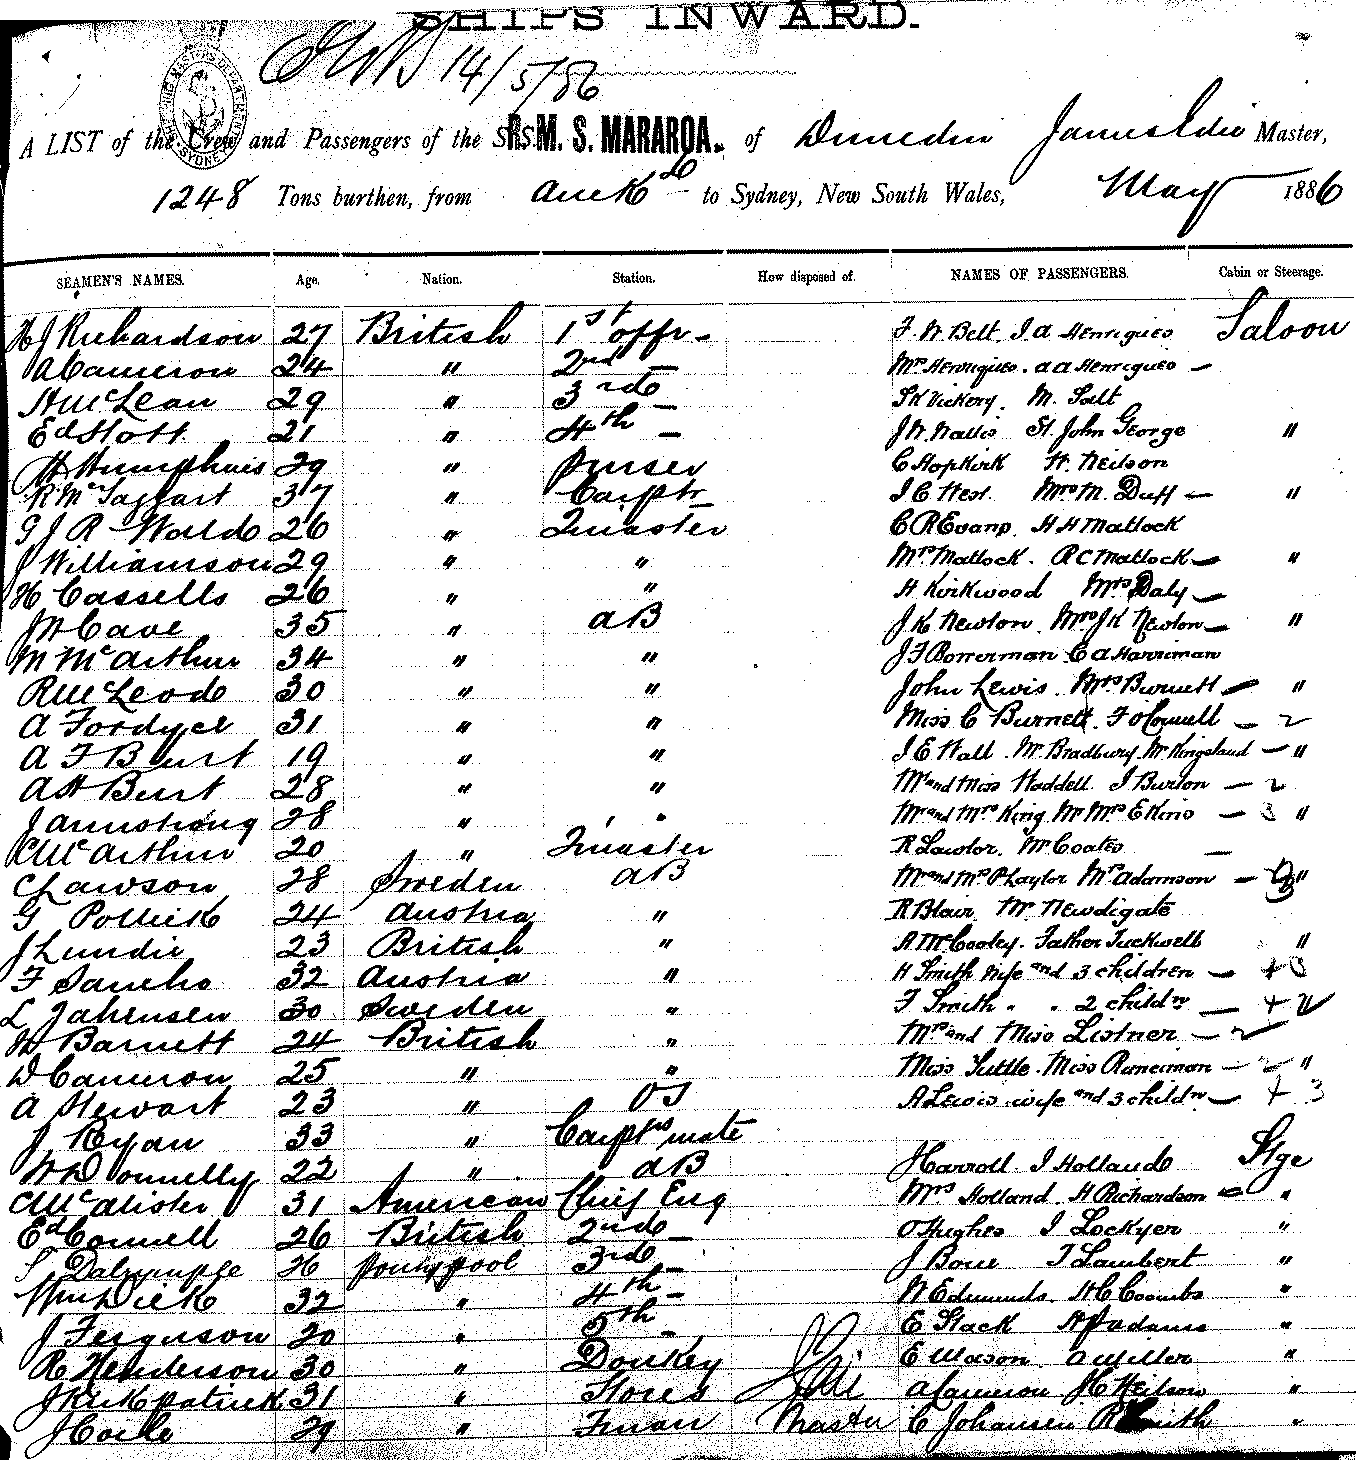 SHIPS INWARD.
14/5/86
A LIST of the Crew and Passengers of the S.S. R.M.S. MARAROA. of Dunedin James Edie Master,
1248 Tons burthen, from Auckd to Sydney, New South Wales, May 1886
SEAMEN'S NAMES. Age. Nation. Station. How disposed of. NAMES OF PASSENGERS. Cabin or Steerage.
H J Richardson 27 British 1st offr - F. W. Belt. I A Henriques Saloon
A Cameron 24 " 2nd - Mrs Henriques. A A Henriques -
H McLean 29 " 3rd - S K Vickery. M. Salt
Ed Stott 21 " 4th - J. W. Wallis St. John George "
H Humphries 29 " Purser C Hopkirk W. Neilson
R. McTaggart 37 " Carptr J C West. Mrs M. Duff - "
G J R Waldo 26 " Qmaster C R Evans H H Matlock
J Williamson 29 " " Mrs Matlock. R C Matlock - "
H Cassells 26 " " H Kirkwood Mrs Daly -
J W Cave 35 " AB J. K. Newton. Mrs J K Newton - "
M McArthur 34 " " J F Bowerman C A Harriman
R McLeod 30 " " John Lewis. Mrs Burnett - "
A Fordyce 31 " " Miss C Burnett. F O'Connell - 2
A F Burt 19 " " J E Wall. Mr Bradbury. Mr Kingsland - "
A H Burt 28 " " Mr and Miss Waddell. J Burton - 2
J Armstrong 28 " " Mr and Mrs King. Mr Mrs E King - 3 "
C McArthur 20 " Qmaster R Lawlor. Mr Coates -
C Lawson 28 Sweden AB Mr and Mrs P Taylor Mr Adamson - "
G Pollick 24 Austria " R Blair. Mr Newdigate
J Lundie 23 British " A McCooley. Father Tuckwell "
F Sancho 32 Austria " H Smith wife and 3 children - + 3
L Jahensen 30 Sweden " F Smith " " 2 childn - +
W Barnett 24 British " Mrs and Miss Listner - 2
D Cameron 25 " " Miss Tuttle. Miss Runciman - "
A Stewart 23 " OS A Lewis wife and 3 childn - + 3
J Ryan 33 " Carptrs mate
W Donnelly 22 " AB J Carroll. J Holland Stge
C McAlister 31 American Chief Eng Mrs Holland. H Richardson - "
Ed Connell 26 British 2nd - O Hughes J Lockyer "
S Dalrymple 26 3rd - J Bone T Lambert "
Wm Dick 32 " 4th - W Edmunds. H C Coombs "
J Ferguson 30 " 5th - E Slack A P Adams "
R Henderson 30 " Donkey E Mason. A Miller "
J Kirkpatrick 31 " Stores A Cameron J C Neilson "
J Coile 29 " Fman Master C Johansen R Smith "